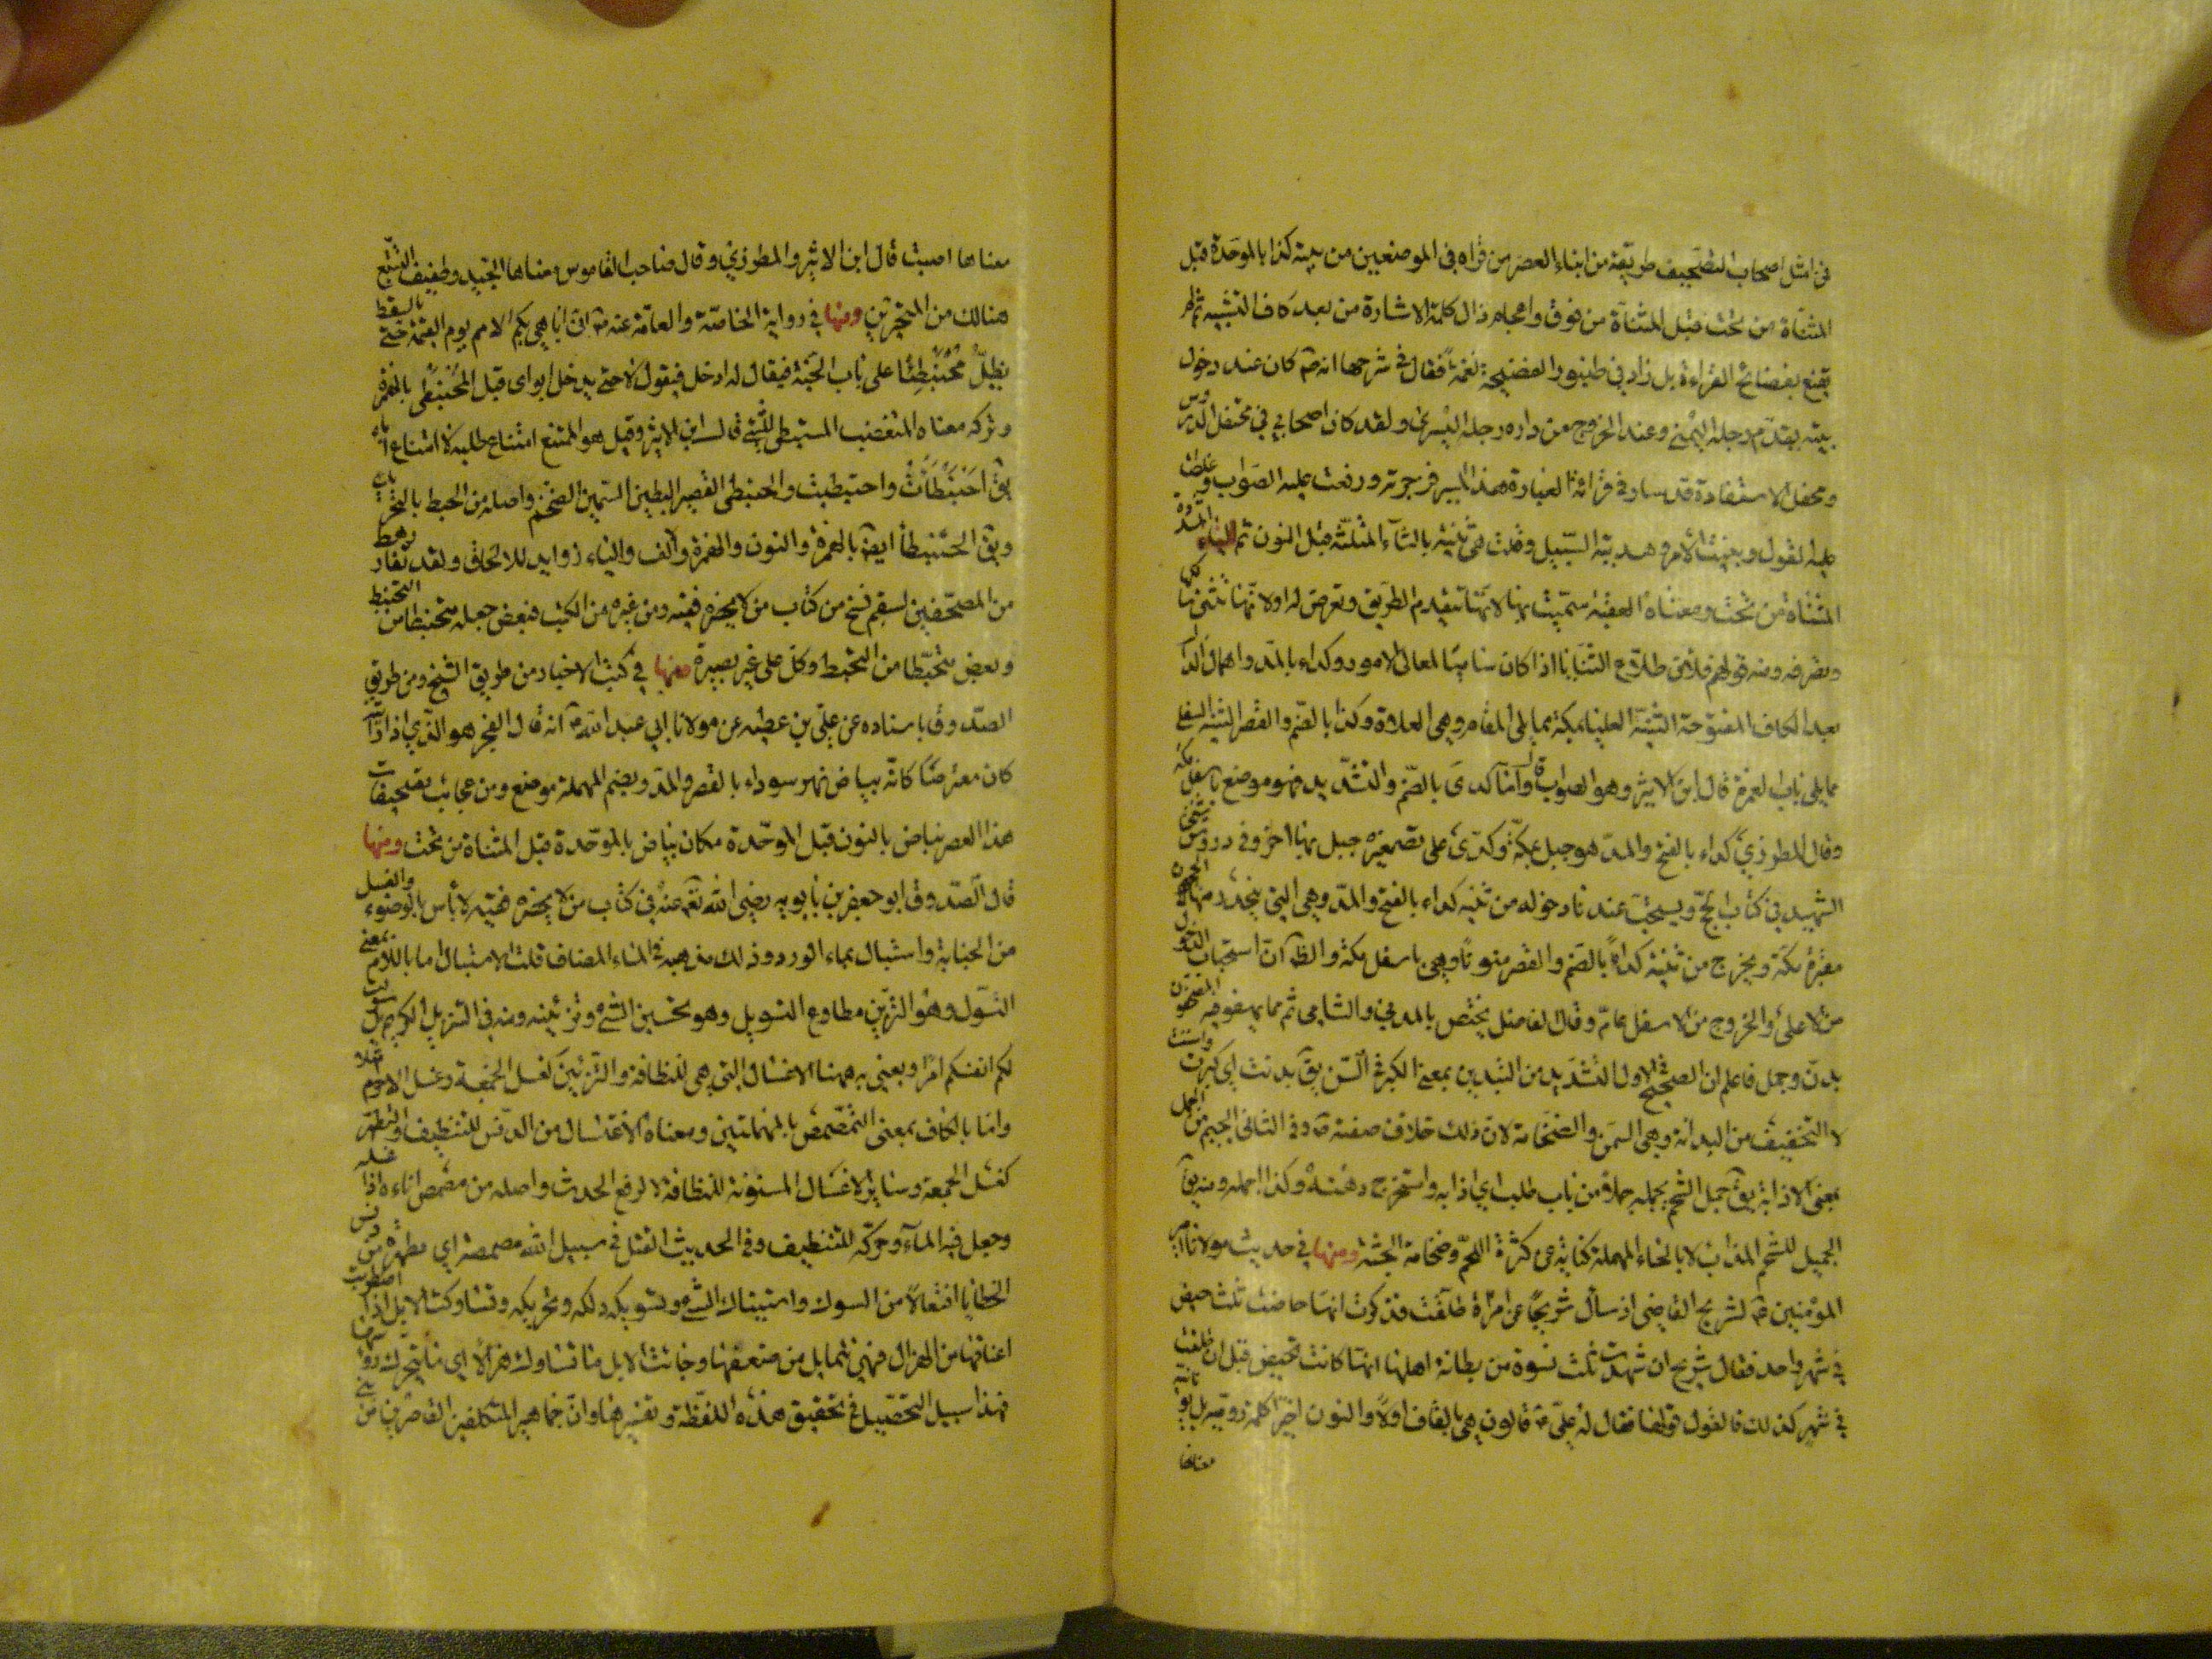 في امثل اصحاب التصحيف طريقة من ابناء العصر من قراه في الموضعين من بيته كذا بالموحدة قبل
المثناة من تحت قبل المثناة من فوق واعجام ذال كلمة الاشارة من بعد كاف التشبيه ثم لم
يقنع بفضائح القراءة بل زاد في طنبور الفضيحة نغمة فقال في شرحها انه ص كان عند دخول
بيته يقدم رجله اليمنى وعند الخروج من داره رجله اليسرى ولقد كان اصحابي في محتفل الدروس
ومحفل الاستفادة قد سار في قرائة العبارة هذا المسير فزجرته ورفعت عليه الصواب وغلظت
عليه القول وبينت الامر وهديته السبيل وقلت هي ثنية بالثاء المثلثة قبل النون ثم الياء المشددة
المثناة من تحت ومعناه العقبة سميت بها لانها تتقدم الطريق وتعرض له اولانها تثنى
وتصرفه ومنه قولهم فلان طلاع الثنايا اذا كان ساميا لمعالى الامور وكداء بالمد واهمال الدال
بعد الكاف المفتوحة الثنية العليا بمكة مما يلى المقابر وهى المعلاة وكدا بالضم والقصر الثنية السفلى
مما يلى باب العمرة قال ابن الاثير وهو الصواب واما كدى بالضم والتشديد فهو موضع باسفل مكة
وقال المطرزي كداء بالفتح والمد هو جبل بمكة وكدى على تصغيره جبل بها اخر وفى دروس شيخنا
الشهيد في كتاب الحج ويستحب عندنا دخوله من ثنية كداء بالفتح والمد وهى التي ينحدر منها الى الحجون
مقبرة مكة ويخرج من ثنية كدا بالضم والقصر منونا وهي باسفل مكة والظاهر ان استحباب الدخول
من الاعلى والخروج من الاسفل عام وقال الفاضل يختص بالمدني والشامي ثم مما يهفو فيه المصحفون
بدن وجمل فاعلم ان الصحيح في الاول التشديد من التبدين بمعنى الكبر في السن يق بدنت اي كبرت واسننت
لا التخفيف من البدانة وهى السمن والضخامة لان ذلك خلاف صفته ص وفى الثانى الجيم من الجمل
بمعنى الاذابة يق جمل الشحم يجمله جملا من باب طلب اي اذابه واستخرج دهنه وكذا اجمله ومنه يق
الجميل للشحم المذاب لا بالحاء المهملة كناية عن كثرة اللحم وضخامة الجثة ومنها في حديث مولانا امير
المؤمنين ع لشريح القاضي اذ سأل شريحا عن امرأة طلقت فذكرت انها حاضت ثلث حيض
في شهر واحد فقال شريح ان شهدت ثلث نسوة من بطانة اهلها انها كانت تحيض قبل ان طلقت
في شهر كذلك فالقول قولها فقال له علي ع قالون هي بالقاف اولا والنون اخيرا كلمة رومية بل يونانية
معناها
معناها اصبت قال ابن الاثير والمطرزي وقال صاحب القاموس معناها الجيد وطفيف التتبع
هنالك من المتحرين ومنها في رواية الخاصة والعامة عنه ص انى اباهي بكم الامم يوم القيمة حتى بالسقط
يظل محبنطئا على باب الجنة فيقال له ادخل فيقول لا حتى يدخل ابواى قبل المحبنطى بالهمزة
وتركه معناه المتغضب المستبطى للشئ قال ابن الاثير وقيل هو الممتنع امتناع طلبة لا امتناع اباء
يق احبنطأت واحبنطيت والحبنطى القصير البطين السمين الضخم واصله من الحبط بالتحريك
ويق الحبنطأ ايضا بالهمزة والنون والهمزة والالف والياء زوايد للالحاق ولقد تفارط رهط
من المصحفين لسقم نسخ من كتاب من لا يحضره فقيه ومن غيره من الكتب فبعض جعله متحبطا من التحبط
وبعض متخبطا من التخبط وكل على غير بصيرة ومنها في كتب الاخبار من طريق الشيخ ومن طريق
الصدوق باسناده عن علي بن عطيه عن مولانا ابي عبد الله ع انه قال الفجر هو الذي اذا رأيته
كان معترضا كانه بياض نهر سوراء بالقصر والمد وبضم المهملة موضع ومن عجائب تصحيفات
هذا العصر نباض بالنون قبل الموحدة مكان بياض بالموحدة قبل المثناة من تحت ومنها
قال الصدوق ابو جعفر بن بابويه رضى الله تعالى عنه في كتاب من لا يحضره فقيه لا بأس بالوضوء والغسل
من الجنابة واستيال بماء الورد وذلك مذهبه في الماء المضاف قلت الاستيال اما باللام بمعنى
التسول وهو التزين مطاوع التسويل وهو تحسين الشئ وتزيينه ومنه في التنزيل الكريم بل سولت
لكم انفسكم امرا ويعنى به ههنا الاغتسال التي هي للنظافة والتزيين كغسل الجمعة وغسل الاحرام مثلا
واما بالكاف بمعنى التمصمص بالمهملتين ومعناه الاغتسال من الدنس للتنظيف والتطهر
كغسل الجمعة وساير الاغسال المسنونة للنظافة لا لرفع الحدث واصله من مصمص اناءه اذا غسله
وجعل فيه الماء وحركه للتنظيف وفى الحديث القتل في سبيل الله مصمصة اي مطهرة من دنس
الخطايا افتعالا من السوك واستياك الشئ وتسويكه دلكه وتحريكه وتساوكت الابل اذا اضطربت
اعناقها من الهزال فهي تتمايل من ضعفها وجائت الابل ما تتساوك هزالا اي ما تتحرك رؤسها
فهذا سبيل التحصيل في تحقيق هذه اللفظة وتفسيرها وان جماهير المتكلفين القاصرين من بني